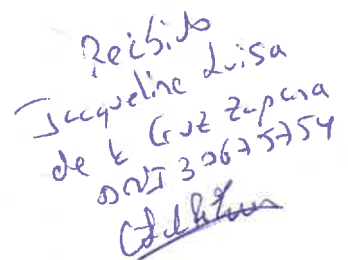 Recibido
Jacqueline Luisa
de la Cruz Zapana
DNI 30675754